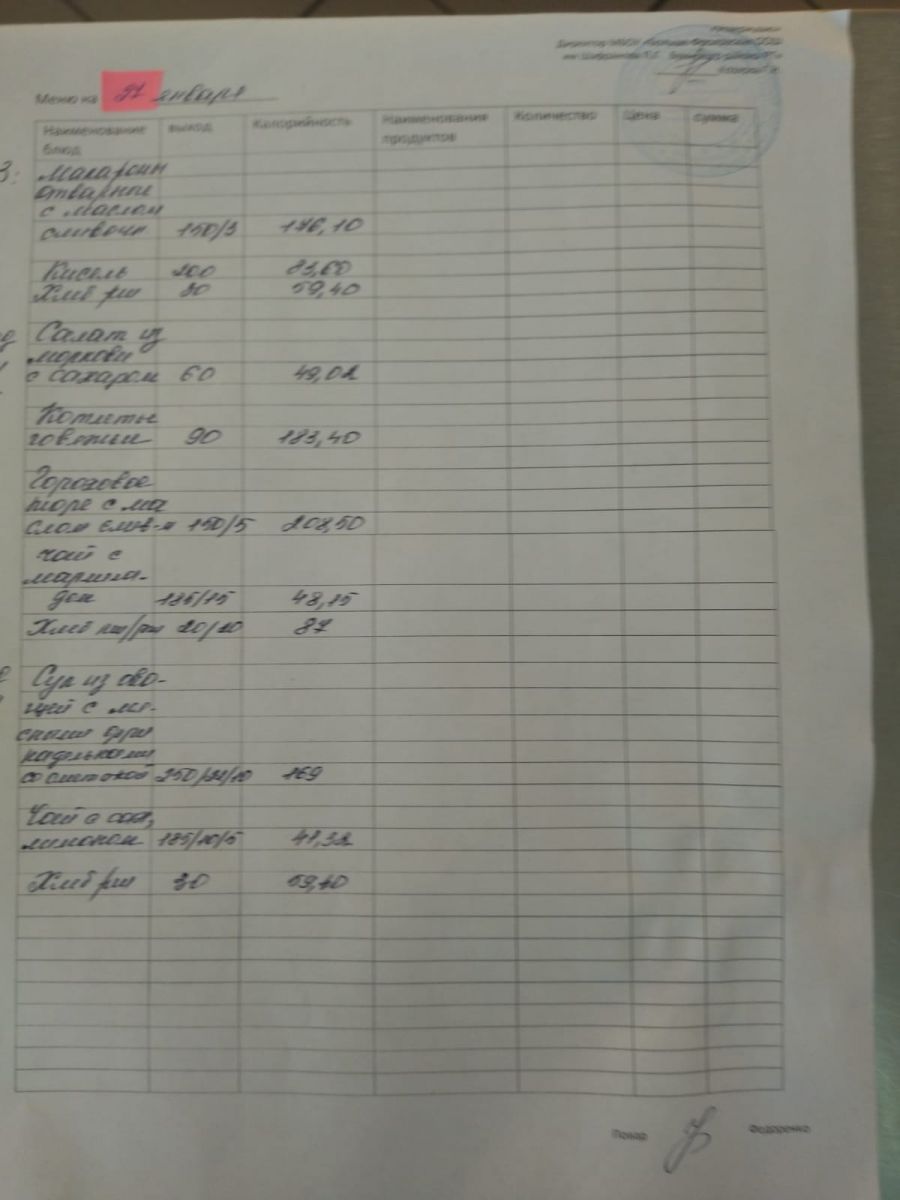 Директор МБОУ
Меню на 27 января
Наименование блюд выход Калорийность Наименования продуктов Количество Цена сумма
З:
Макароны
отварные
с маслом
сливочн 150/3 176,10
Кисель 200 83,60
Хлеб рж 30 59,40
Салат из
моркови
с сахаром 60 49,02
Котлеты
говяжьи 90 183,40
Гороховое
пюре с ма
слом слив-м 150/5 208,50
Чай с
мармела-
дом 185/15 48,15
Хлеб пш/рж 20/20 87
Суп из ово-
щей с мя-
сными фри
кадельками
со сметаной 169
Чай с сах,
лимоном 185/10/5 41,32
Хлеб рж 30 59,40
Повар Федоренко